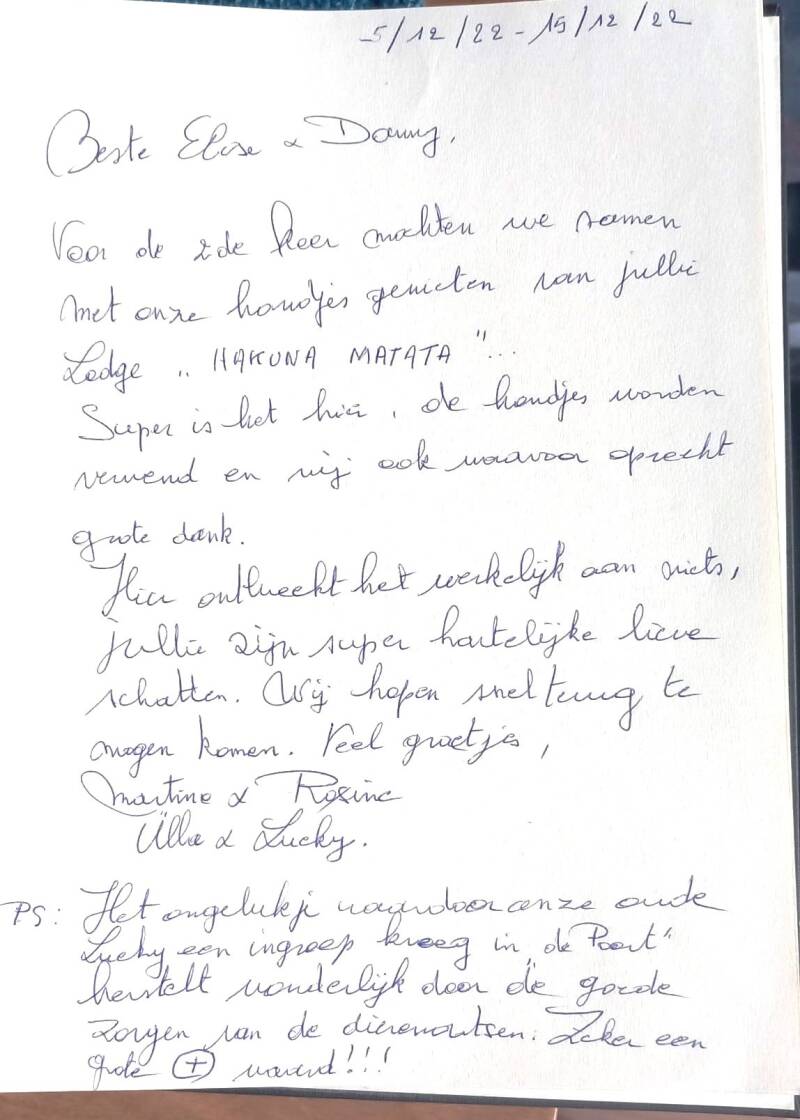 5/12/22 - 15/12/22
Beste Elise & Danny,
Voor de 2de keer mochten we samen
met onze hondjes genieten van jullie
Lodge „HAKUNA MATATA"...
Super is het hier, de hondjes worden
verwend en wij ook waarvoor oprecht
grote dank.
Hier ontbreekt het werkelijk aan niets,
jullie zijn super hartelijke lieve
schatten. Wij hopen snel terug te
mogen komen. Veel groetjes,
Martine & Rosine
Ülla & Lucky.
PS: Het ongelukje waardoor onze oude
Lucky een ingreep kreeg in „de Poort"
herstelt wonderlijk door de goede
zorgen van de dierenartsen. Zeker een
grote + waard!!!